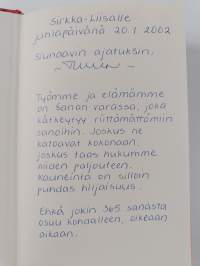 Sirkka-Liisalle
juhlapäivänä 20.1.2002
siunaavin ajatuksin,
Työmme ja elämämme
on Sanan varassa, joka
kätkeytyy riittämättömiin
sanoihin. Joskus ne
katoavat kokonaan,
joskus taas hukumme
niiden paljouteen.
Kauneinta on silloin
puhdas hiljaisuus.
Ehkä jokin 365 sanasta
osuu kohdalleen, oikeaan
aikaan.